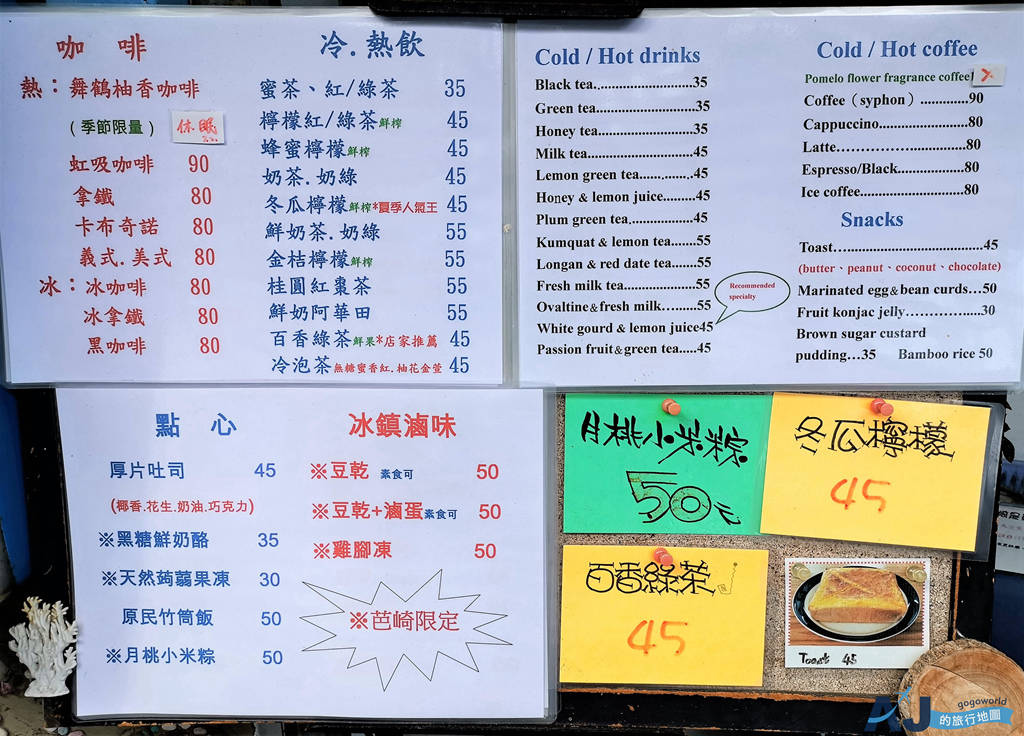 咖 啡
熱：舞鶴柚香咖啡
(季節限量) 休眠
虹吸咖啡 90
拿鐵 80
卡布奇諾 80
義式.美式 80
冰：冰咖啡 80
冰拿鐵 80
黑咖啡 80
冷.熱飲
蜜茶、紅/綠茶 35
檸檬紅/綠茶鮮榨 45
蜂蜜檸檬鮮榨 45
奶茶.奶綠 45
冬瓜檸檬鮮榨*夏季人氣王 45
鮮奶茶.奶綠 55
金桔檸檬鮮榨 55
桂圓紅棗茶 55
鮮奶阿華田 55
百香綠茶鮮果*店家推薦 45
冷泡茶無糖蜜香紅.柚花金萱 45
Cold / Hot drinks
Black tea.......................35
Green tea........................35
Honey tea........................35
Milk tea..........................45
Lemon green tea.............45
Honey & lemon juice.........45
Plum green tea................45
Kumquat & lemon tea.......55
Longan & red date tea.......55
Fresh milk tea..................55
Ovaltine&fresh milk...........55
White gourd & lemon juice45
Passion fruit&green tea.....45
Recommended
specialty
Cold / Hot coffee
Pomelo flower fragrance coffee X
Coffee（syphon）............90
Cappuccino.....................80
Latte..............................80
Espresso/Black................80
Ice coffee.......................80
Snacks
Toast...................................45
(butter、peanut、coconut、chocolate)
Marinated egg&bean curds…50
Fruit konjac jelly……………....30
Brown sugar custard
pudding…35 Bamboo rice 50
點 心
厚片吐司 45
(椰香.花生.奶油.巧克力)
※黑糖鮮奶酪 35
※天然蒟蒻果凍 30
原民竹筒飯 50
※月桃小米粽 50
冰鎮滷味
※豆乾 素食可 50
※豆乾+滷蛋素食可 50
※雞腳凍 50
※芭崎限定
月桃小米粽
50元
冬瓜檸檬
45
百香綠茶
45
Toast 45
AJ gogoworld
的旅行地圖